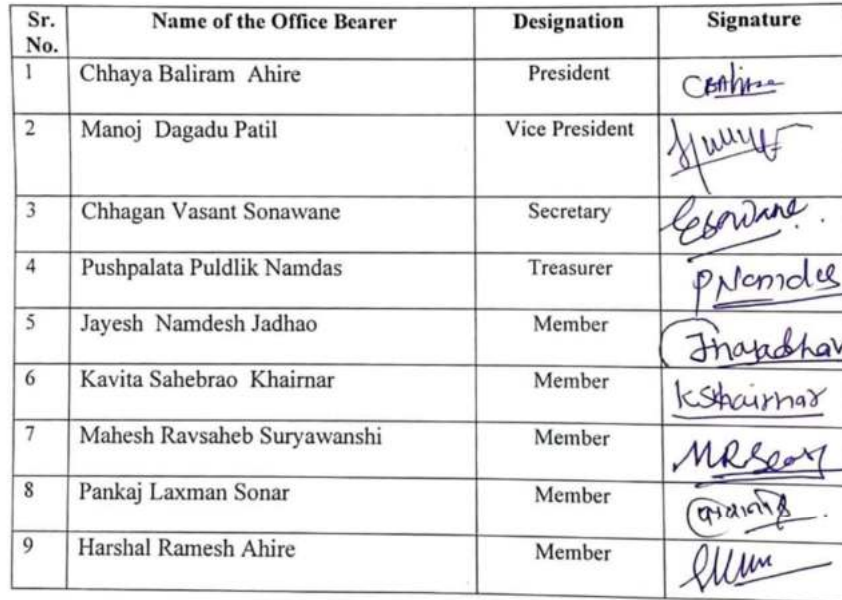 Sr. No. Name of the Office Bearer Designation Signature
1 Chhaya Baliram Ahire President CBAhire
2 Manoj Dagadu Patil Vice President
3 Chhagan Vasant Sonawane Secretary
4 Pushpalata Puldlik Namdas Treasurer PNamdas
5 Jayesh Namdesh Jadhao Member
6 Kavita Sahebrao Khairnar Member KSKhairnar
7 Mahesh Ravsaheb Suryawanshi Member
8 Pankaj Laxman Sonar Member
9 Harshal Ramesh Ahire Member